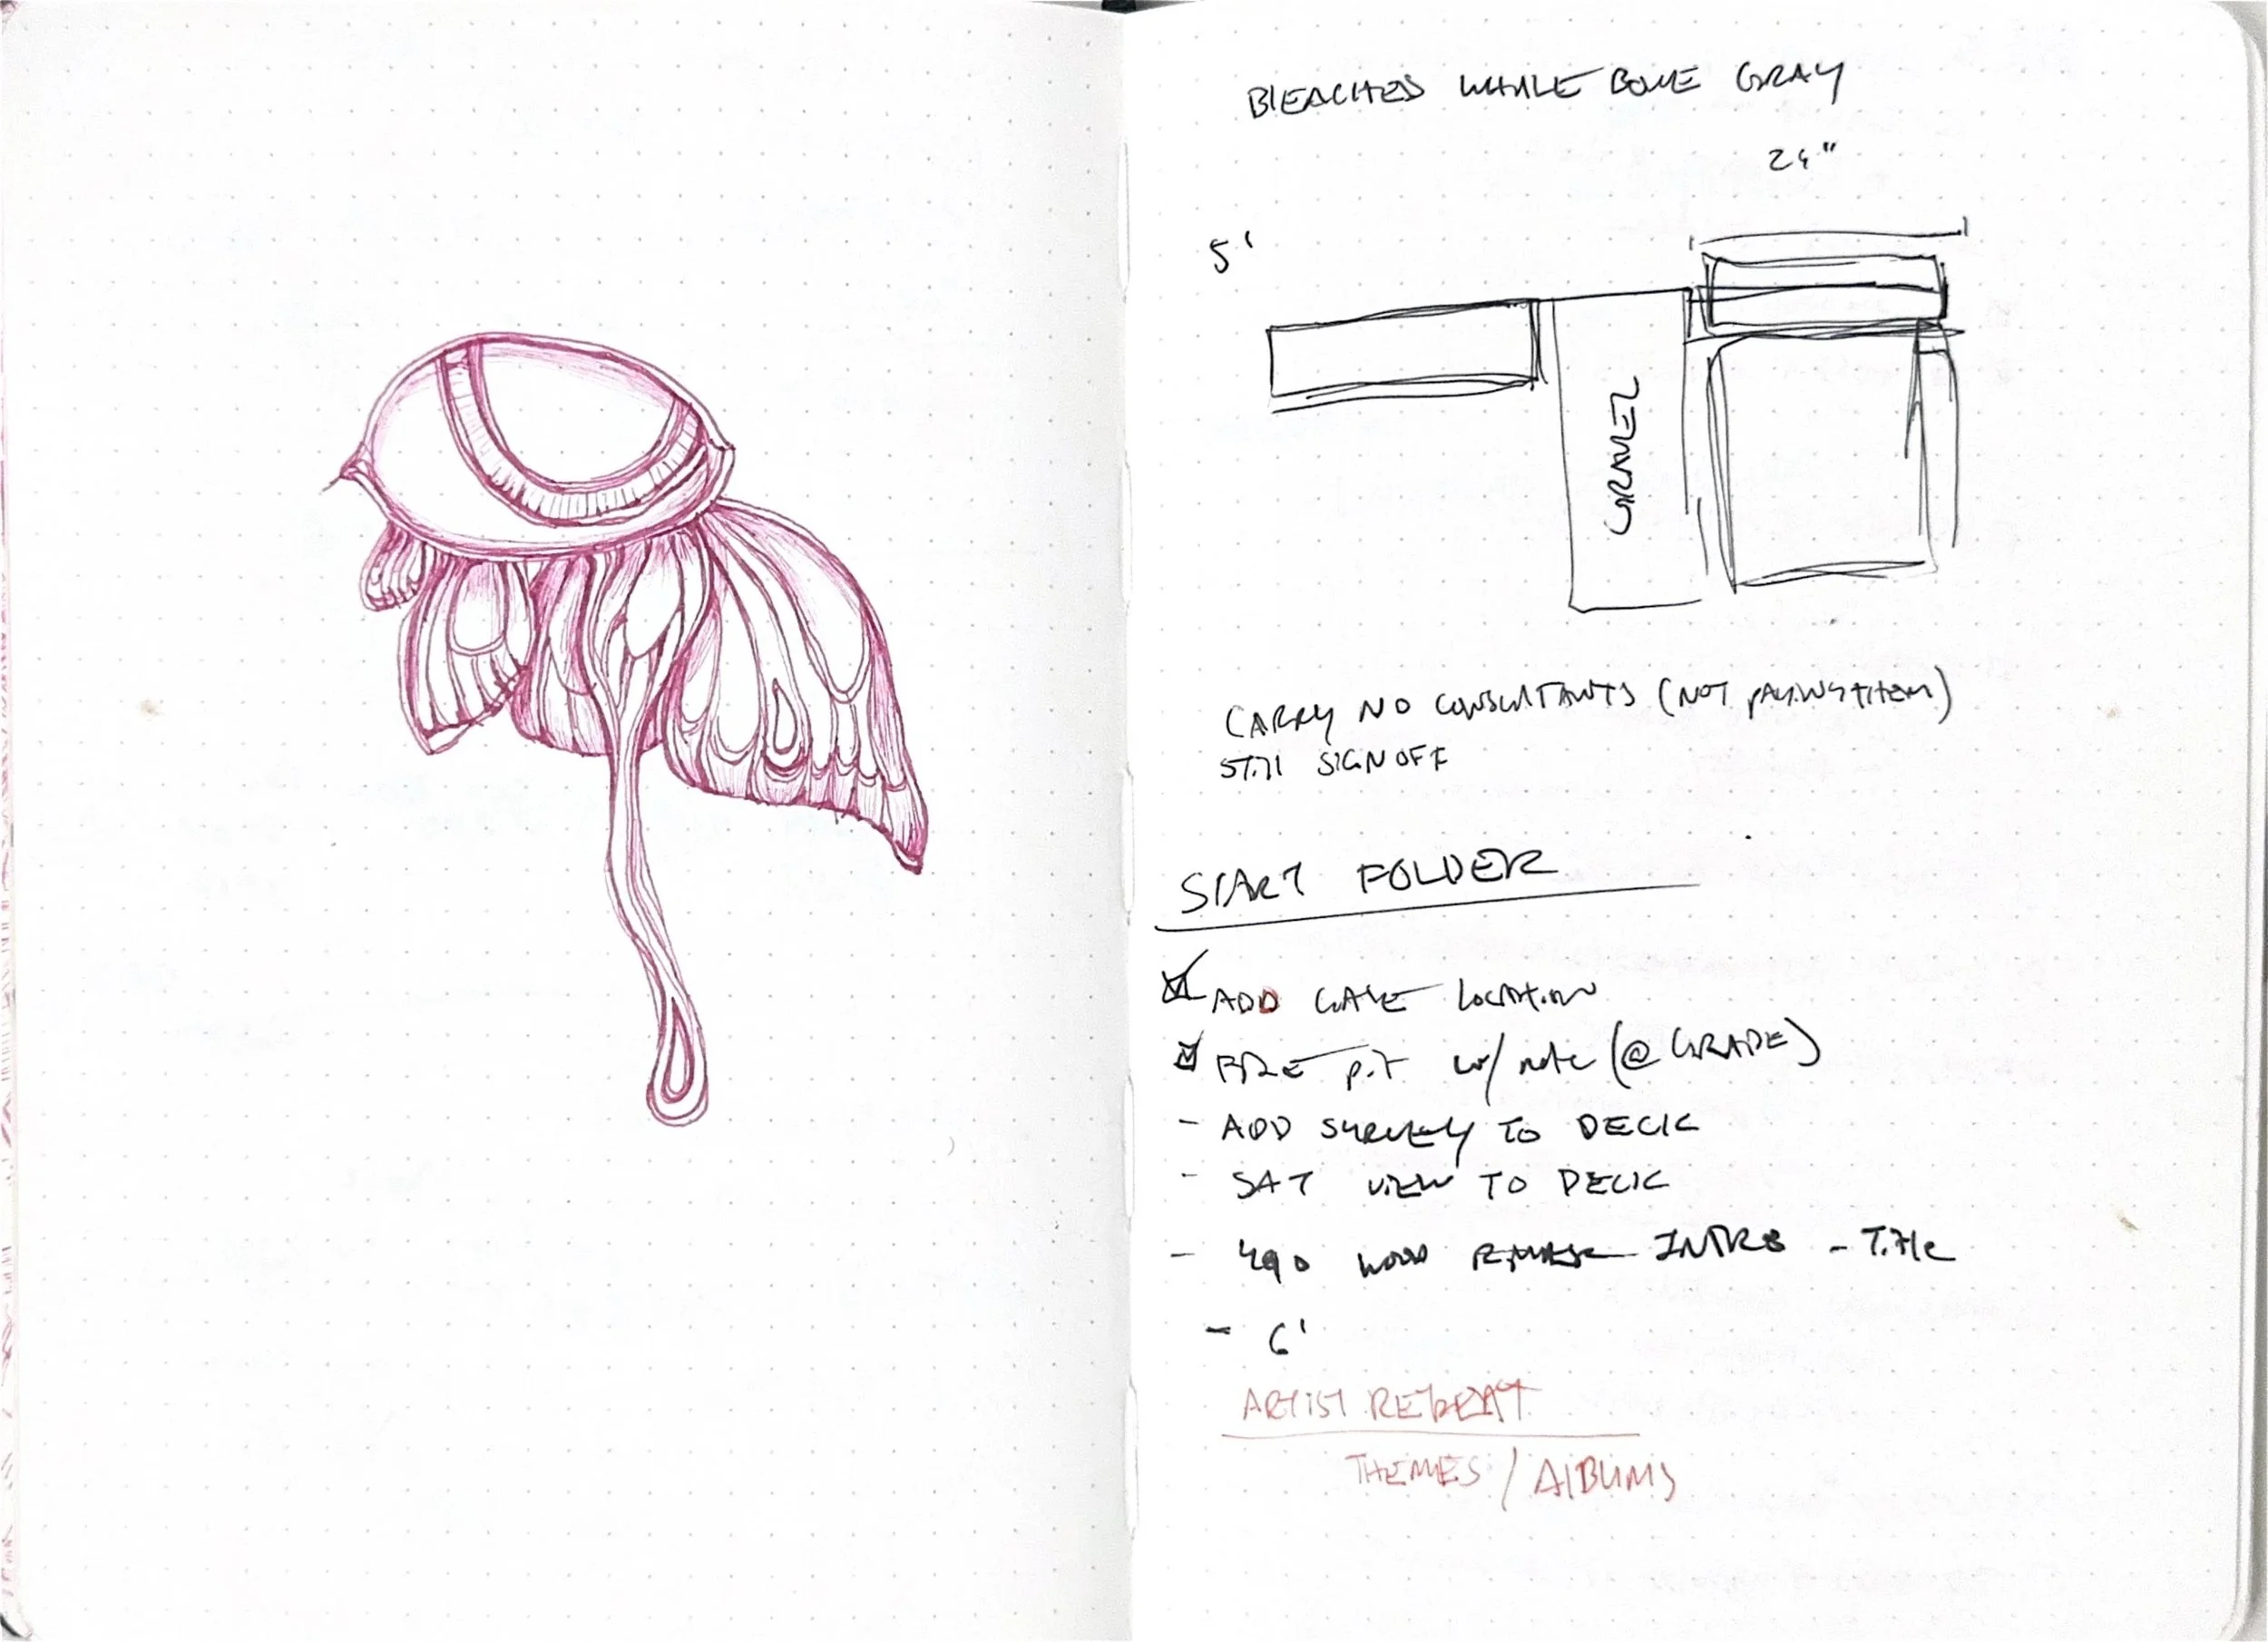 BLEACHED WHALE BONE GRAY
24"
5'
GRAVEL
CARRY NO CONSULTANTS (NOT PAYING THEM)
STILL SIGN OFF
START FOLDER
ADD GATE LOCATION
FIRE PIT w/ note (@ GRADE)
- ADD SURVEY TO DECK
- SAT VIEW TO DECK
- 490 WOOD INTRO - Title
- 6'
ARTIST RETREAT
THEMES / ALBUMS